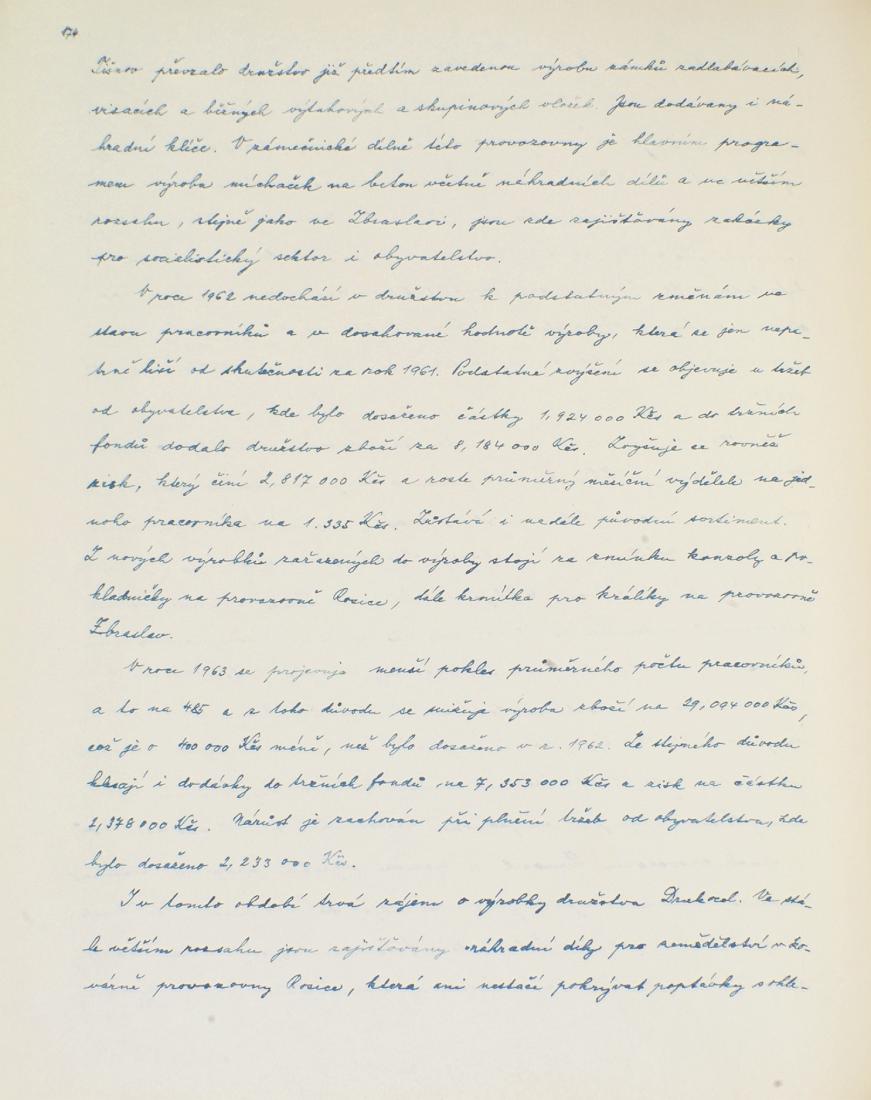 Tišnov převzalo družstvo již předtím zavedenou výrobu zámků zadlabávacích,
visacích a běžných výtahových a skupinových vložek. Jsou dodávany i ná-
hradní klíče. V zámečnické dílně této provozovny je hlavním progra-
mem výroba míchaček na beton včetně náhradních dílů a ve větším
rozsahu, stejně jako ve Zbraslavi, jsou zde zajišťovány zakázky
pro socialistický sektor i obyvatelstvo.
V roce 1962 nedochází v družstvu k podstatným změnám ve
stavu pracovníků a v dosahované hodnotě výroby, která se jen nepa-
trně liší od skutečnosti za rok 1961. Podstatné zvýšení se objevuje u tržeb
od obyvatelstva, kde bylo dosaženo částky 1,924 000 Kčs a do tržních
fondů dodalo družstvo zboží za 8,184 000 Kčs. Zvyšuje se rovněž
zisk, který činí 2,817 000 Kčs a roste průměrný měsíční výdělek na jed-
noho pracovníka na 1.335 Kčs. Zůstává i nadále původní sortiment.
Z nových výrobků zařazených do výroby stojí za zmínku konzoly a po-
kladničky na provozovně Rosice, dále krmítka pro králíky na provozovně
Zbraslav.
V roce 1963 se projevuje menší pokles průměrného počtu pracovníků,
a to na 485 a z toho důvodu se snižuje výroba zboží na 29,094 000 Kčs,
což je o 400 000 Kčs méně, než bylo dosaženo v r. 1962. Ze stejného důvodu
klesají i dodávky do tržních fondů na 7,353 000 Kčs a zisk na částku
2,378 000 Kčs. Nárůst je zachován při plnění tržeb od obyvatelstva, kde
bylo dosaženo 2,233 000 Kčs.
I v tomto období trvá zájem o výrobky družstva Drukocel. Ve stá-
le větším rozsahu jsou zajišťovány náhradní díly pro zemědělství v ko-
várně provozovny Rosice, která ani nestačí pokrývat poptávky s ohle-